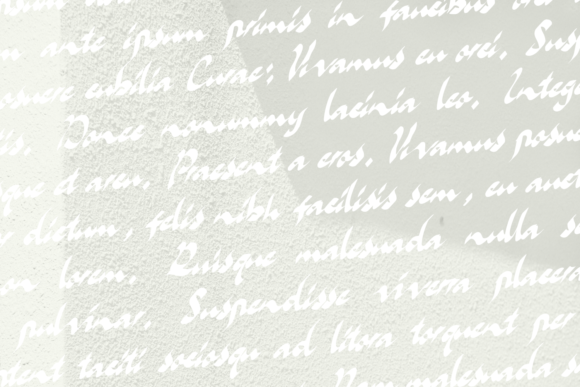 ante ipsum primis in faucibus
cubilia Curae; Vivamus eu orci. Susp
is. Donec nonummy lacinia leo. Integ
que et arcu. Praesent a eros. Vivamus posu
r dictum, felis nibh facilisis sem, eu auct
an lorem. Quisque malesuada nulla
pulvinar. Suspendisse viverra placera
ptent taciti sociosqu ad litora torquent per
Nam malesuada